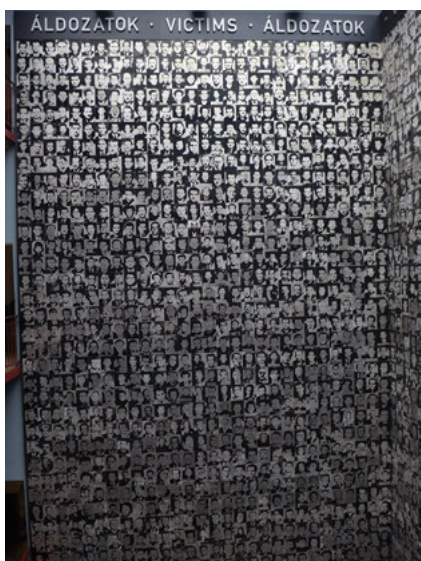 ÁLDOZATOK · VICTIMS · ÁLDOZATOK